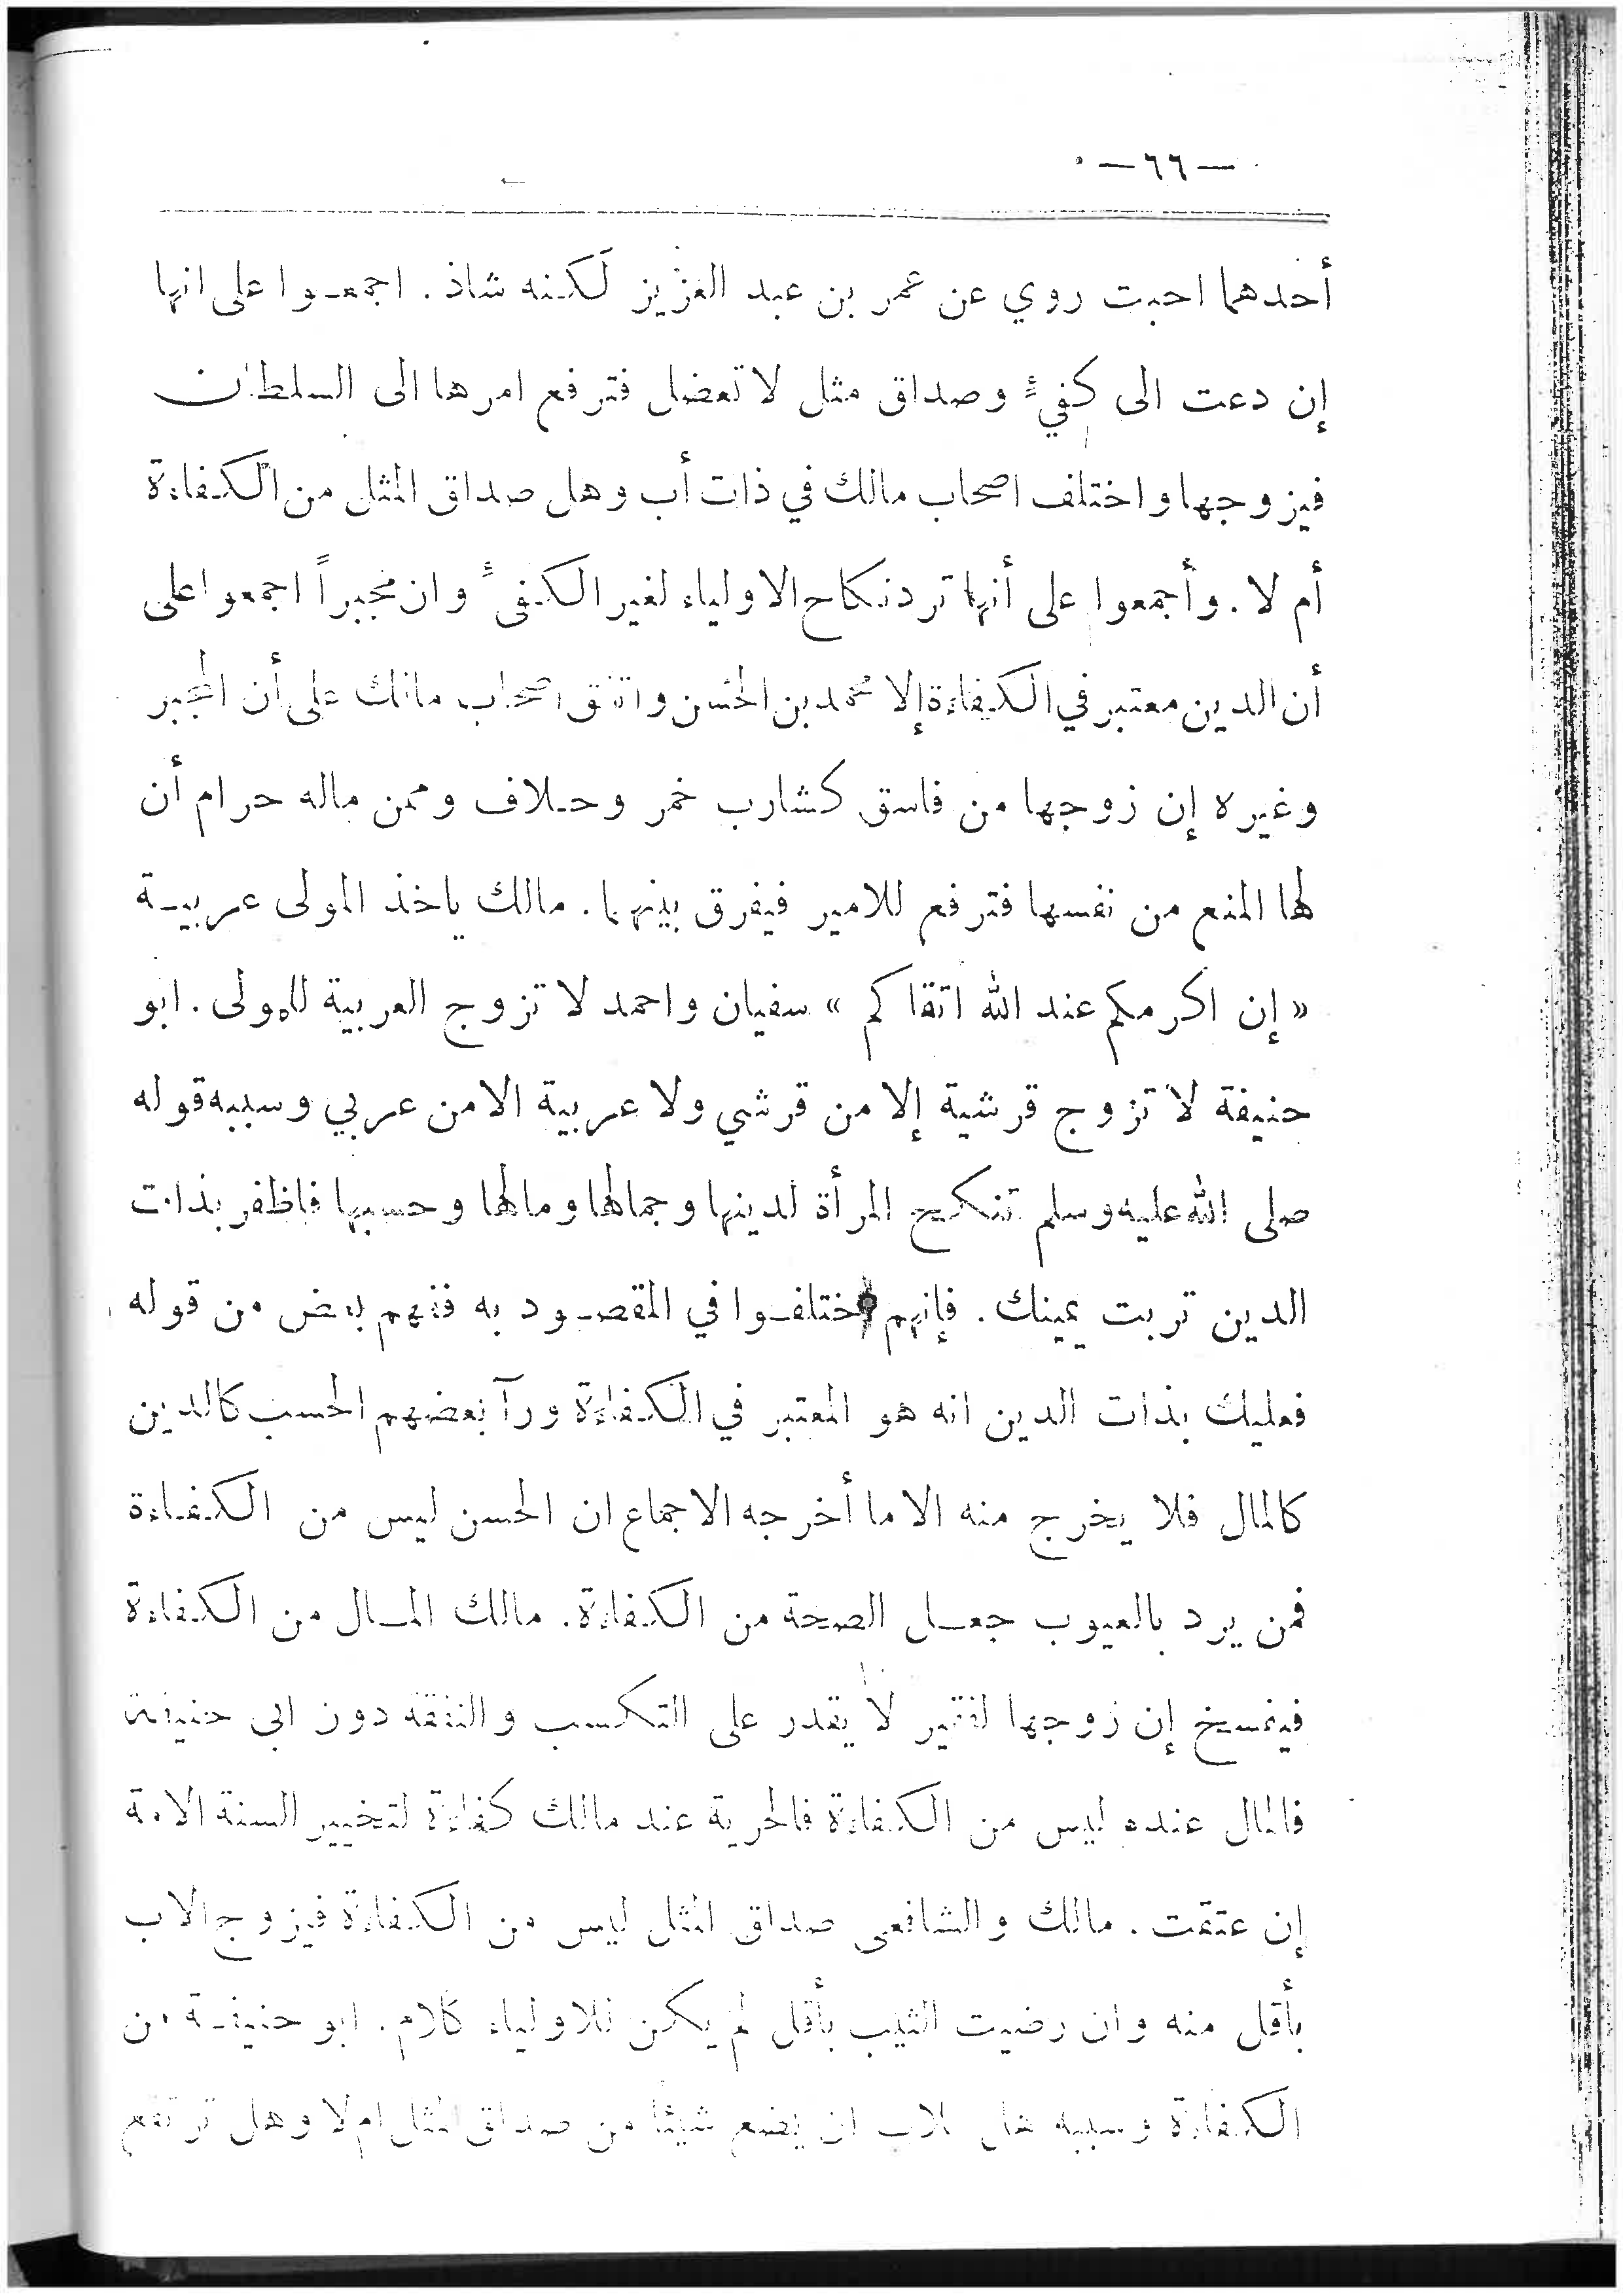 — ٦٦ —
أحدهما احبت روي عن عمر بن عبد العزيز لكنه شاذ . اجمعوا على انها
إن دعت الى كفيءٍ وصداق مثل لا تعضل فترفع امرها الى السلطان
فيزوجها واختلف اصحاب مالك في ذات أب وهل صداق المثل من الكفاءة
أم لا . وأجمعوا على أنها ترد نكاح الاولياء لغير الكفىءٍ وان مجبراً اجمعوا على
أن الدين معتبر في الكفاءة إلا محمد بن الحسن واتفق اصحاب مالك على أن المجبر
وغيره إن زوجها من فاسق كشارب خمر وحلاف وممن ماله حرام أن
لها المنع من نفسها فترفع للامير فيفرق بينهما . مالك ياخذ المولى عربية
« إن اكرمكم عند الله اتقاكم » سفيان واحمد لا تزوج العربية للمولى . ابو
حنيفة لا تزوج قرشية إلا من قرشي ولا عربية الا من عربي وسببه قوله
صلى الله عليه وسلم تنكح المرأة لدينها وجمالها ومالها وحسبها فاظفر بذات
الدين تربت يمينك . فإنهم اختلفوا في المقصود به ففهم بعض من قوله
فعليك بذات الدين انه هو المعتبر في الكفاءة ورآ بعضهم الحسب كالدين
كالمال فلا يخرج منه الا ما أخرجه الاجماع ان الحسن ليس من الكفاءة
فمن يرد بالعيوب جعل الصحة من الكفاءة . مالك المال من الكفاءة
فيفسخ إن زوجها لفقير لا يقدر على التكسب والنفقة دون ابى حنيفة
فالمال عنده ليس من الكفاءة فالحرية عند مالك كفاءة لتخيير السنة الامة
إن عتقت . مالك والشافعى صداق المثل ليس من الكفاءة فيزوج الاب
بأقل منه وان رضيت الثيب بأقل لم يكن للاولياء كلام . ابو حنيفة من
الكفاءة وسببه هل للاب ان يضع شيئا من صداق المثل ام لا وهل ترتفع